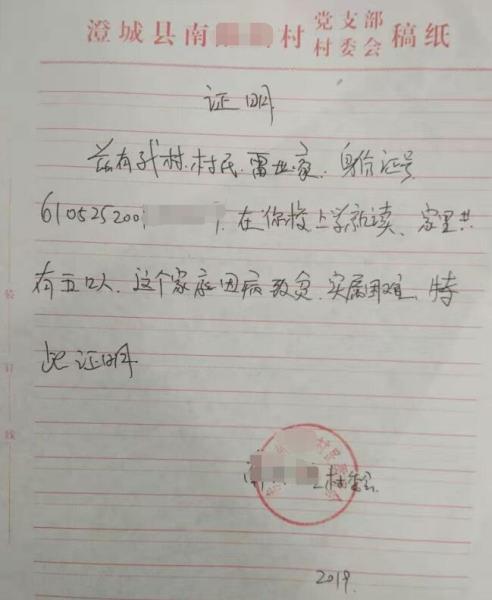 澄城县南 村 党支部 村委会 稿纸
证明
兹有我村村民 雷世家,身份证号
610525200 ,在你校上学就读、家里共
有五口人、这个家庭因病致贫,实属困难、特
此证明
村委会
2019.
装
订
线